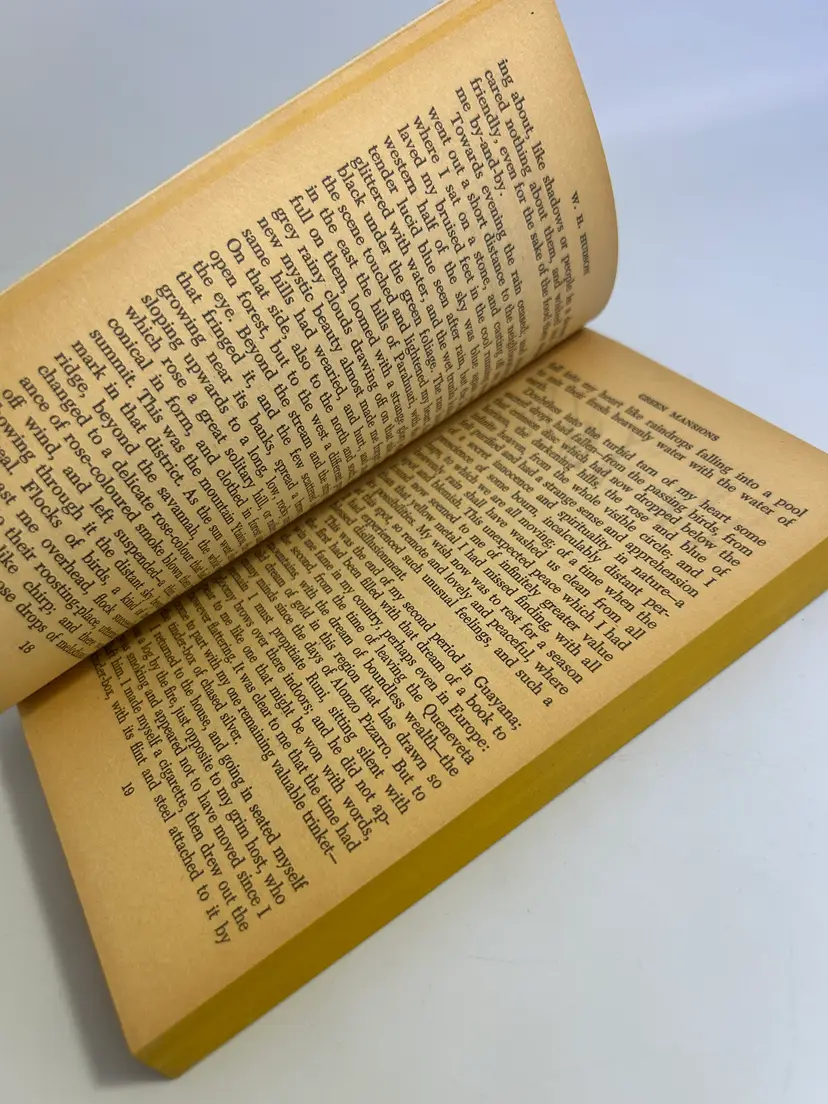 W. H. HUDSON
ing about, like shadows or people in a
cared nothing about them, and
friendly, even for the sake of the food
me by-and-by.
Towards evening the rain ceased, and
went out a short distance to the
where I sat on a stone, and casting
laved my bruised feet in the cool
western half of the sky was blue
tender lucid blue seen after rain, but
glittered with water, and the wet
black under the green foliage. The
the scene touched and lightened my
in the east the hills of Parahuari, with
full on them, loomed with a strange
grey rainy clouds drawing off on that
new mystic beauty almost made me
same hills had wearied, and hurt, and
On that side, also to the north and
open forest, but to the west a
the eye. Beyond the stream and the
that fringed it, and the few
growing near its banks, spread a
sloping upwards to a long, low,
which rose a great solitary hill, or
conical in form, and clothed in
summit. This was the mountain
mark in that district. As the sun
ridge, beyond the savannah, the
changed to a delicate rose-colour
ance of rose-coloured smoke blown
off wind, and left
lowing through it the distant sky
eal. Flocks of birds, a kind
ast me overhead, flock
o their roosting-place,
like chirp; and
ose drops of
18
GREEN MANSIONS
fall into my heart like raindrops falling into a pool
with their fresh heavenly water with the water of
earth.
Doubtless into the turbid tarn of my heart some
drops had fallen—from the passing birds, from
crimson disc which had now dropped below the
the darkening hills, the rose and blue of
heaven, from the whole visible circle; and I
purified and had a strange sense and apprehension
innocence and spirituality in nature—a
of some bourn, incalculably distant per-
to which we are all moving; of a time when the
rain shall have washed us clean from all
and blemish. This unexpected peace which I had
seemed to me of infinitely greater value
that yellow metal I had missed finding, with all
possibilities. My wish now was to rest for a season
spot, so remote and lovely and peaceful, where
had experienced such unusual feelings, and such a
disillusionment.
This was the end of my second period in Guayana;
first had been filled with that dream of a book to
me in my country, perhaps even in Europe;
second, from the time of leaving the Queneveta
with the dream of boundless wealth—the
dream of gold in this region that has drawn so
minds since the days of Alonzo Pizarro. But to
must propitiate Runi, sitting silent with
brows over there indoors; and he did not ap-
to me like one that might be won with words,
however flattering. It was clear to me that the time had
to part with my one remaining valuable trinket—
tinder-box of chased silver.
returned to the house, and going in seated myself
a log by the fire, just opposite to my grim host, who
smoking and appeared not to have moved since I
him. I made myself a cigarette, then drew out the
with its flint and steel attached to it by
19